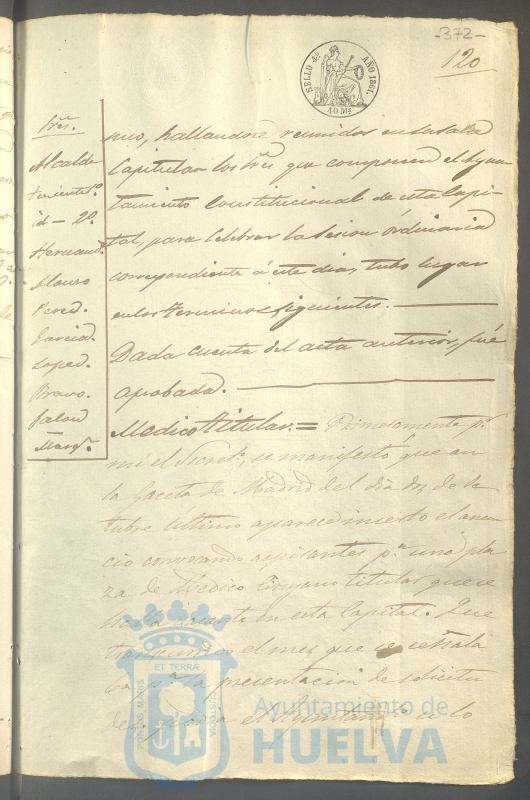 -372-
120
SELLO 4º AÑO 1861.
40 Mˢ
Sres.
Alcalde
teniente 1º
id - 2º
Hernandz.
Mauro
Pered.
Garcia.
Loped.
Bravo.
Jalon
Marqz.
nuo, hallandose reunidos en su sala
Capitular los Sres que componen el Ayun
tamiento Constitucional de esta Capi-
tal, para celebrar la sesion órdinaria
correspondiente á este dia, tubo lugar
en los terminos siguientes.
Dada cuenta del acta anterior, fué
aprobada.
Medico titular. = Primeramente pr.
mi el Secreto., se manifestó que en
la Gaceta de Madrid del dia dos de Oc
tubre último aparece inserto el anun
cio convocando aspirantes pa. una pla
za de Medico Cirujano titular que se
halla vacante en esta Capital. Que
transcurrido el mes que se señala
ba pa. la presentacion de solicitu
des el Ayuntamto. lo
ET TERRÆ
PORTUS MARIS
CUSTODIA
Ayuntamiento de
HUELVA